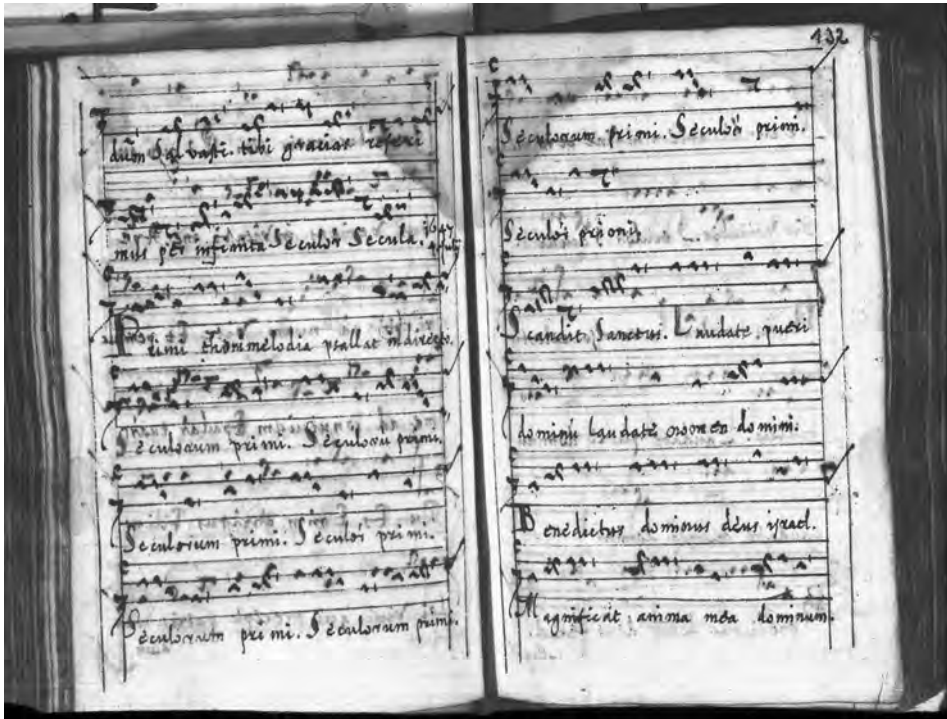 dum Salvasti. tibi gracias referi
mus per infinita Seculor Secula.
Primi thoni melodia psallat in directo.
Seculorum primi. Seculoru primi.
Seculorum primi. Seculor primi.
Seculorum primi. Seculorum primi.
432
Seculorum primi. Seculor primi.
Seculor primi.
Scandit Sanctus. Laudate pueri
dominu laudate nomen domini.
Benedictus dominus deus israel.
Magnificat anima mea dominum.